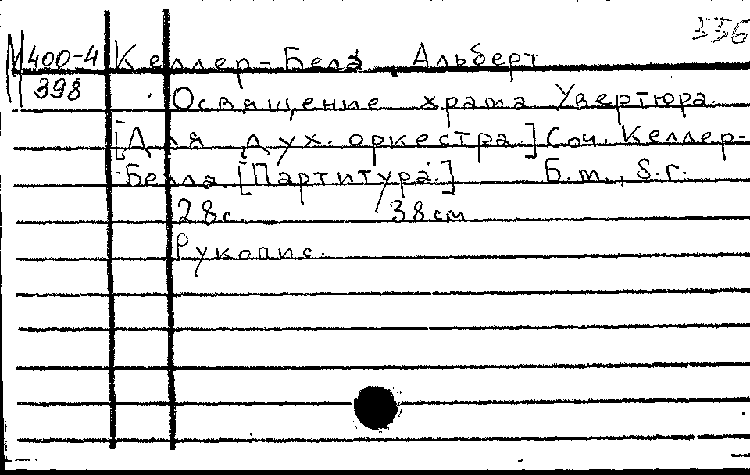 336
М 400-4 Келлер-Бела, Альберт
398 Освящение храма Увертюра.
[Для дух. оркестра.] Соч. Келлер-
Белла. [Партитура.] Б.м., Б.г.
28с. 38см
Рукопис.